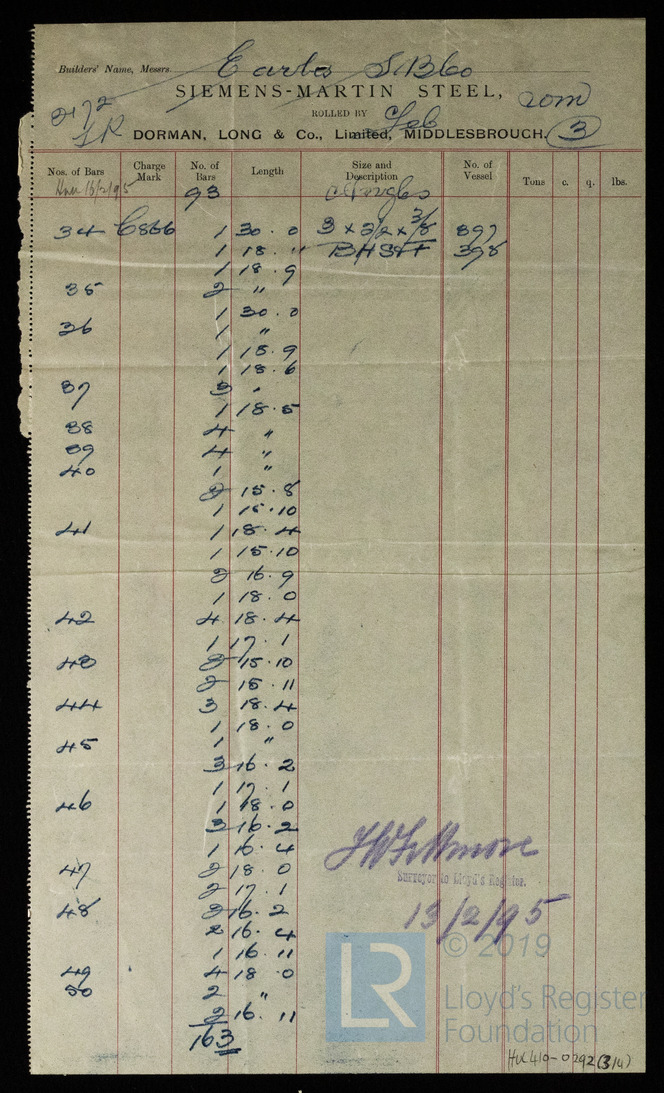 Builders' Name, Messrs. Earles S B Co
SIEMENS-MARTIN STEEL,
ROLLED BY Feb
DORMAN, LONG & Co., Limited, MIDDLESBROUGH. 3
Nos. of Bars Charge Mark No. of Bars Length Size and Description No. of Vessel Tons c. q. lbs.
93 Angles
34 C866 1 30.0 3 x 3/2 x 3/8 397
1 18 . " 398
1 18.9
35 2 "
1 30.0
36 1 "
1 18.9
1 18.6
37 3 "
1 18.5
38 4 "
39 4 "
40 1 "
2 15.8
1 15.10
41 1 18.4
1 15.10
2 16.9
1 18.0
42 4 18.4
1 17.1
43 2 15.10
2 15.11
44 3 18.4
1 18.0
45 1 "
3 16.2
1 17.1
46 1 18.0
3 16.2
1 16.4
47 2 18.0
2 17.1
48 2 16.2
2 16.4
1 16.11
49 4 18.0
50 2 "
2 16.11
163
Surveyor to Lloyd's Register.
13/2/95
LR
© 2019
Lloyd's Register
Foundation
HUL410-0292(3/4)